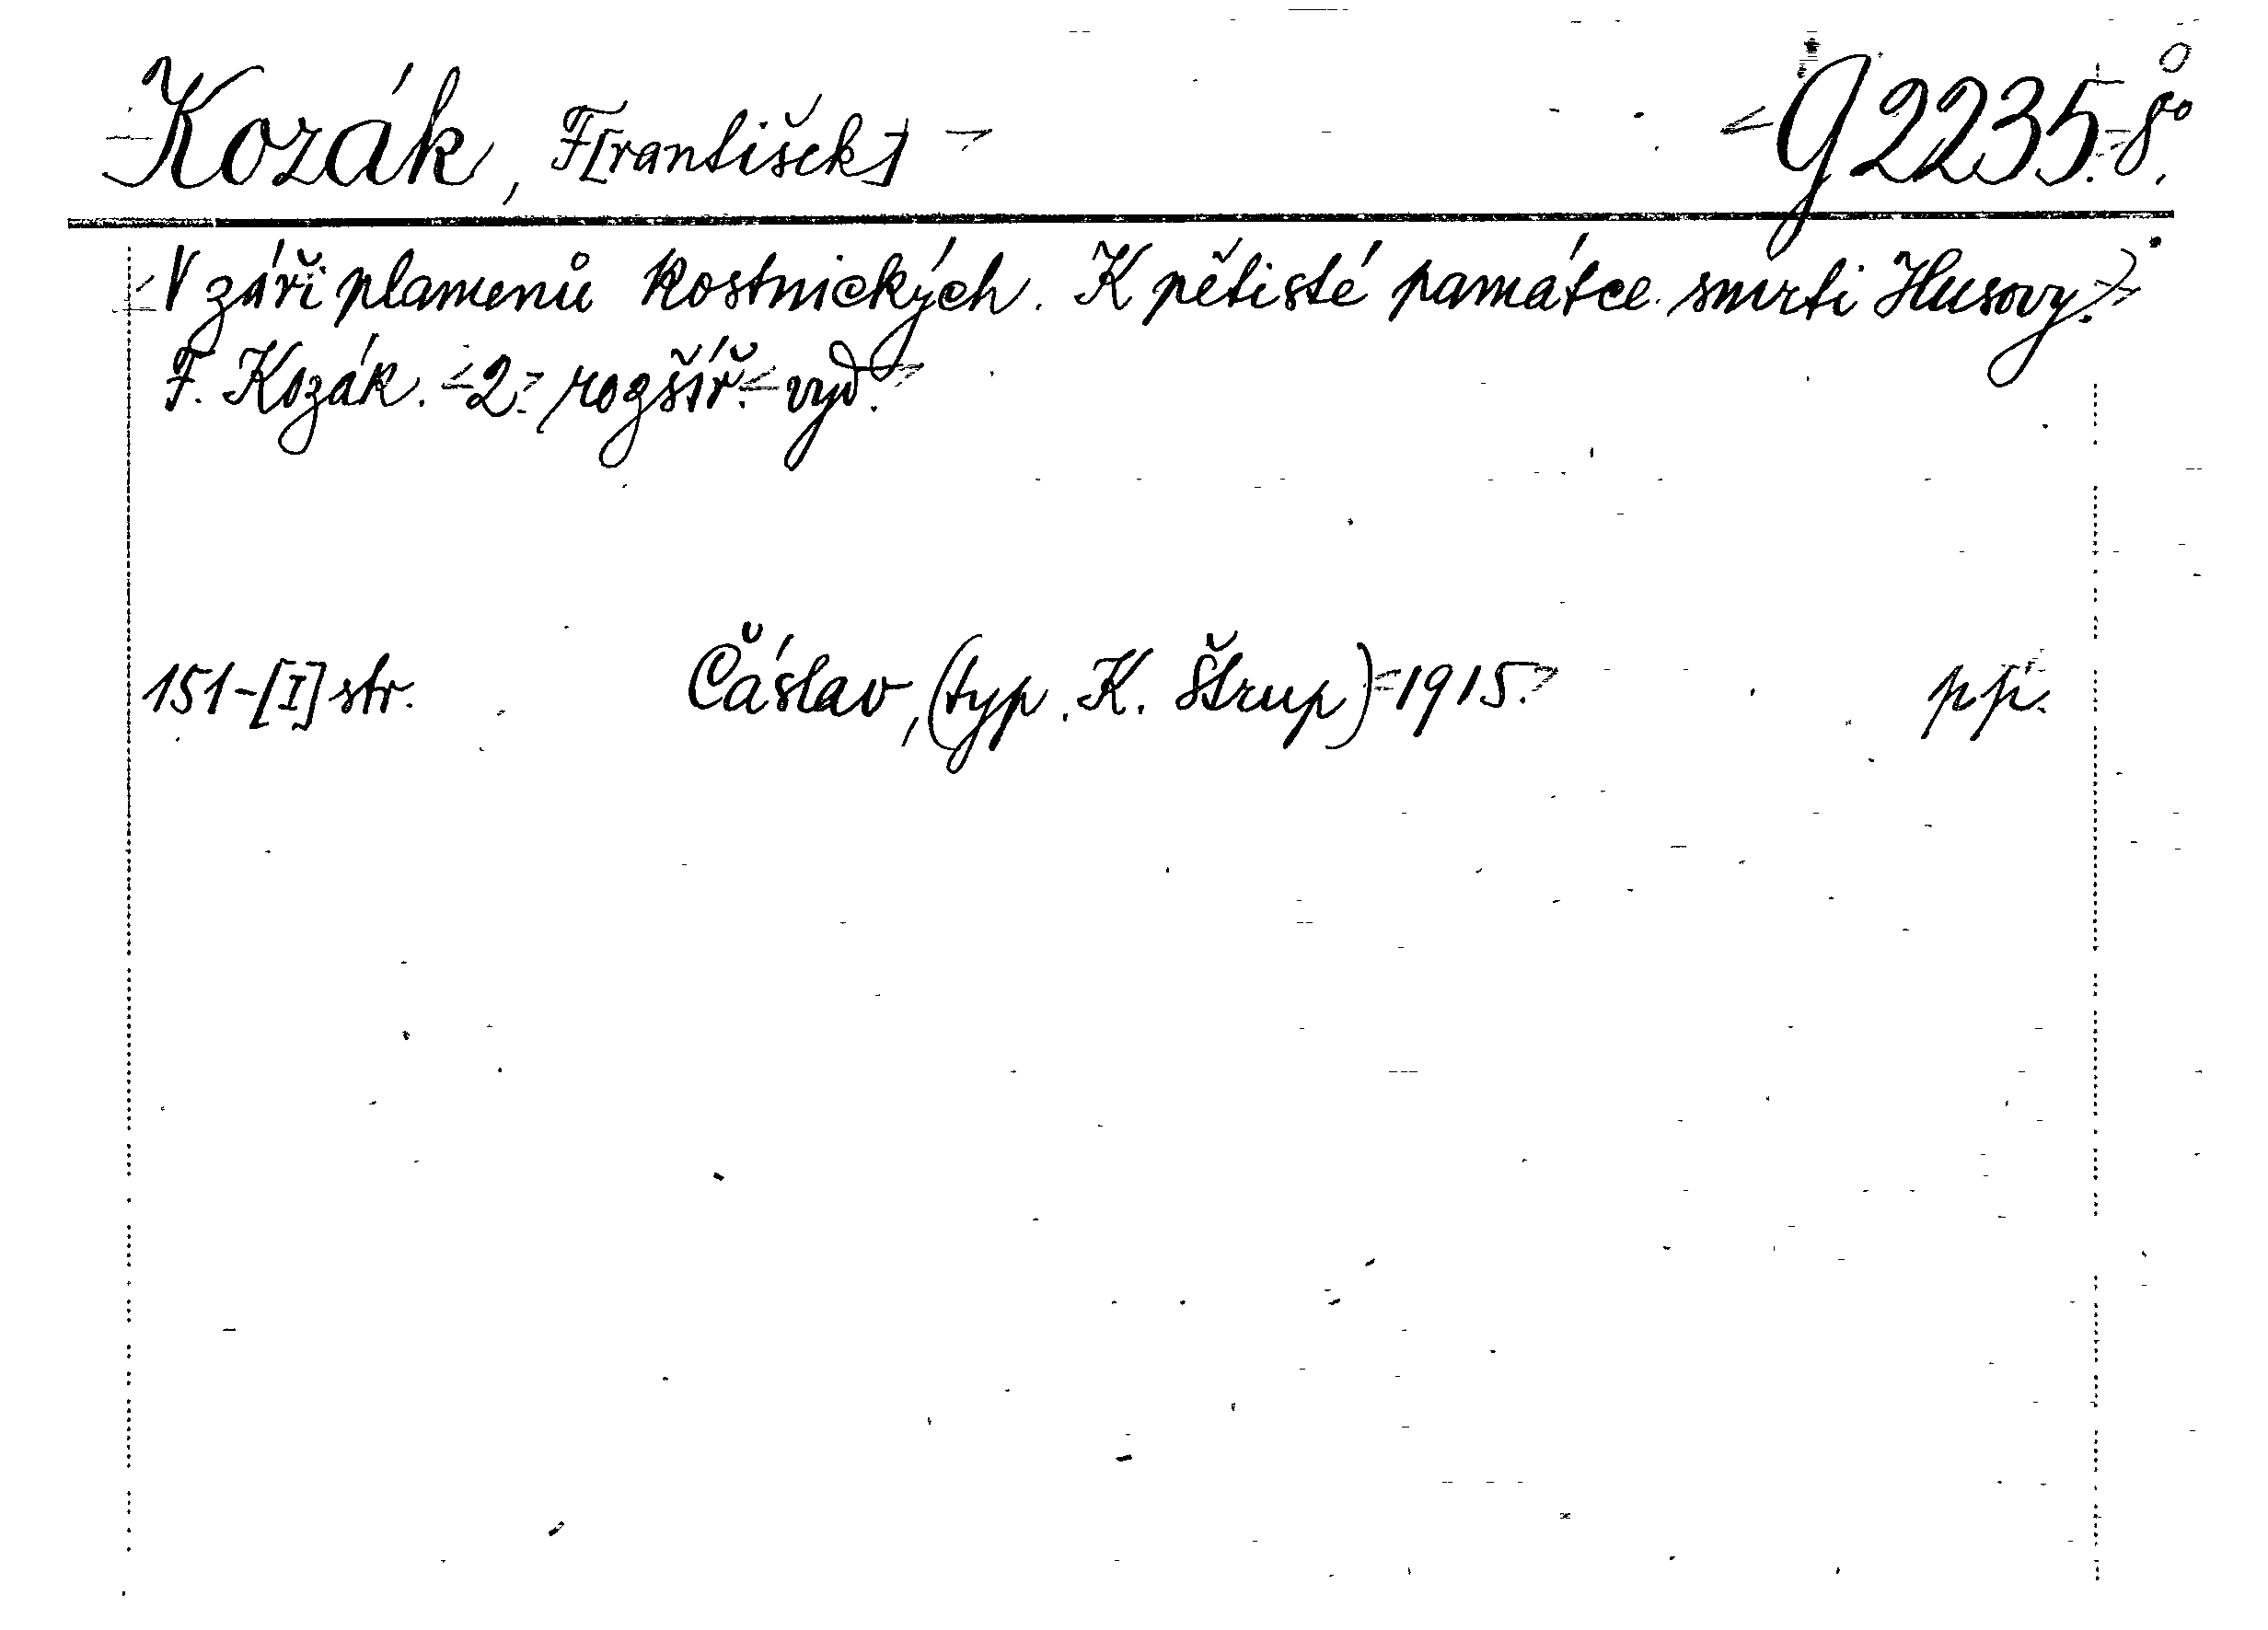 Kozák, F[rantišek] G 2235. 8°.
V záři plamenů kostnických. K pětisté památce smrti Husovy.
F. Kozák. 2. rozšíř. vyd.
151-[I] str. Čáslav, (typ. K. Štrup) 1915. pp.